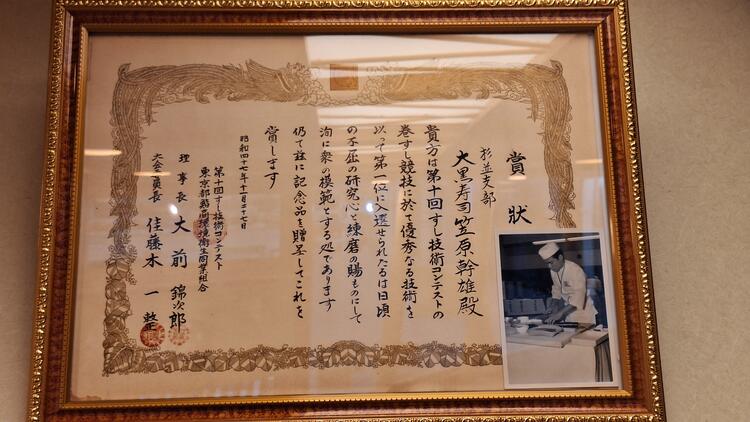 賞状
杉並支部
大黒寿司 笠原幹雄殿
貴方は第十回すし技術コンテストの
巻すし競技に於て優秀なる技術を
以って第一位に入選せられたるは日頃
の不屈の研究心と練磨の賜ものにして
洵に衆の模範とする処であります
仍て茲に記念品を贈呈してこれを
賞します
昭和四十七年十一月二十七日
第十回すし技術コンテスト
東京都鮨商環境衛生同業組合
理事長 大前錦次郎
大会委員長 佳藤木一整